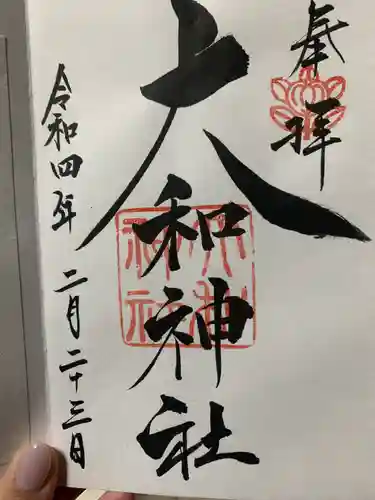 奉拝
大和神社
令和四年二月二十三日